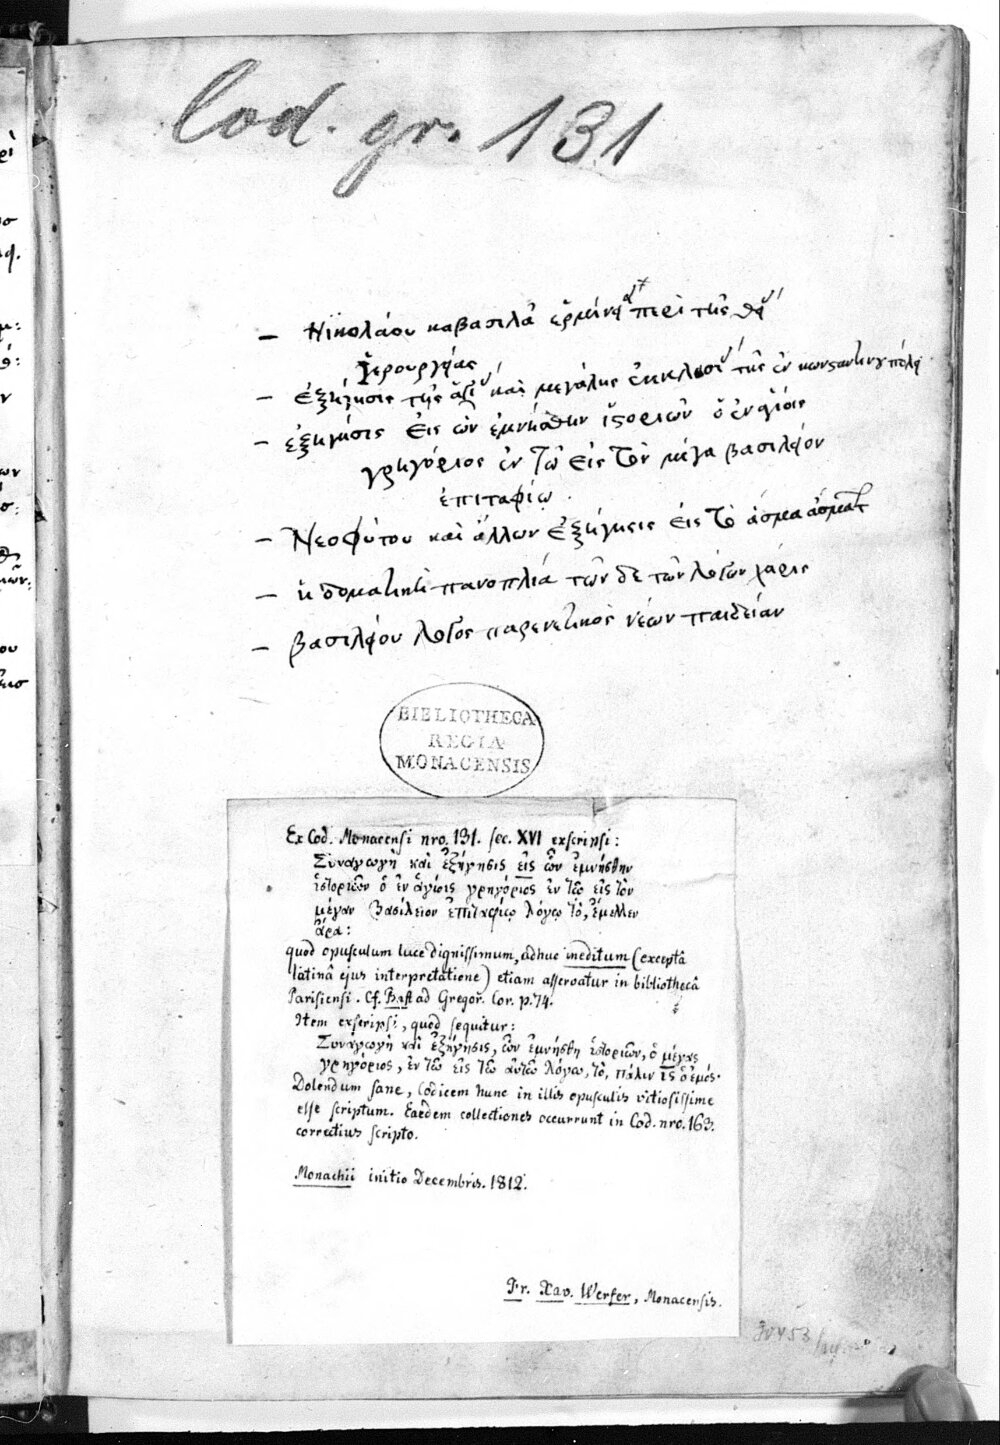 Cod. gr. 131
– Νϊκολάου καβασιλᾶ ἑρμίνα περὶ τῆς θα
ἱερουργίας
– ἐξήγησις τῆς ἁγι καὶ μεγάλης ἐκκλησι τῆς ἐν κωνσαντινγπόλη
– ἐξηγήσις εἰς ὧν ἐμνήσθην ἱςοριῶν ὁ ἐν ἁγίοις
γρηγόριος ἐν τῶ εἰς τὸν μέγα βασιλείον
ἐπιταφίω .
– Νεοφύτου καὶ ἄλλων ἐξήγησις εἰς τὸ ἀσμα ἀσματ
– ἡ δογματικὴ πανοπλία τῶν δε τῶν λόγων χάρις
– βασιλείου λόγος παρενετικὸς νέων παιδείαν
BIBLIOTHECA
REGIA
MONACENSIS
Ex Cod. Monacensi nro. 131. sec. XVI exscripsi:
Συναγωγὴ καὶ ἐξήγησις εἰς ὧν ἐμνήσθην
ἱστοριῶν ὁ ἐν ἁγίοις γρηγόριος ἐν τῶ εἰς τὸν
μέγαν Βασίλειον ἐπιταφίῳ λόγῳ τὸ, ἔμελλεν
ἄρα:
quod opusculum luce dignissimum, adhuc ineditum (exceptâ
latinâ ejus interpretatione) etiam asservatur in bibliothecâ
Parisiensi. Cf. Bast ad Gregor. Cor. p. 74.
Item exscripsi, quod sequitur:
Συνάγωγὴ καὶ ἐξήγησις, ὧν ἐμνήσθη ἱστοριῶν, ὁ μέγας
γρηγόριος, ἐν τῶ εἰς τῶ αὐτῶ λόγω, τὸ, πάλιν ις ὁ ἐμός·
Dolendum sane, Codicem hunc in illis opusculis vitiosissime
esse scriptum. Eaedem collectiones occurrunt in Cod. nro. 163.
correctius scripto.
Monachii initio Decembris. 1812.
Fr. Xav. Werfer, Monacensis.